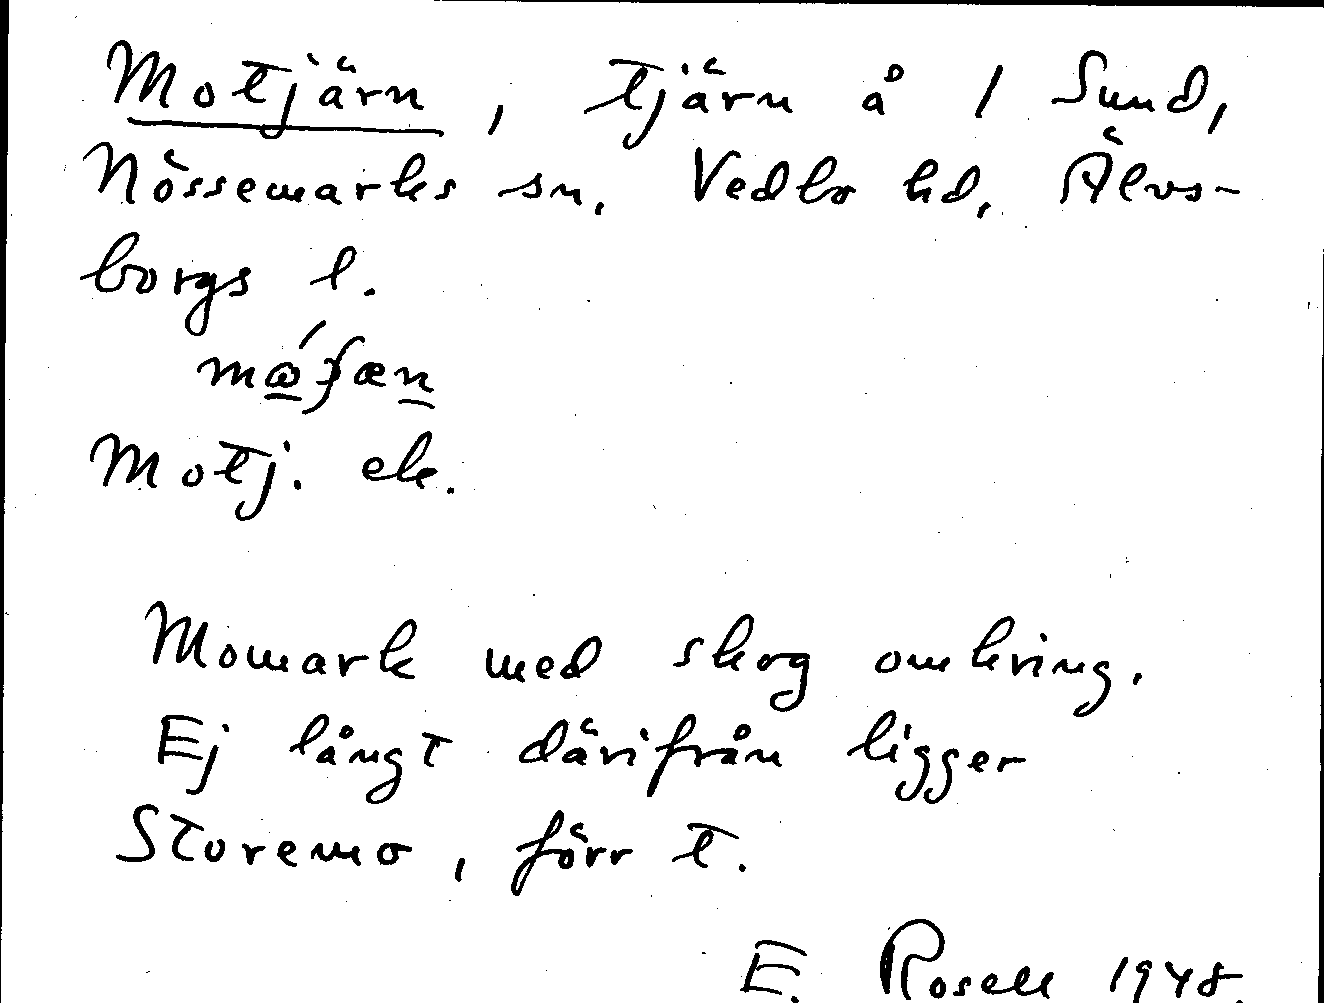 Motjärn, tjärn å 1 Sund,
Nössemarks sn. Vedbo hd, Älvs-
borgs l.
Motj. ek.
Momark med skog omkring.
Ej långt därifrån ligger
Storemo, förr t.
E. Rosell 1948.